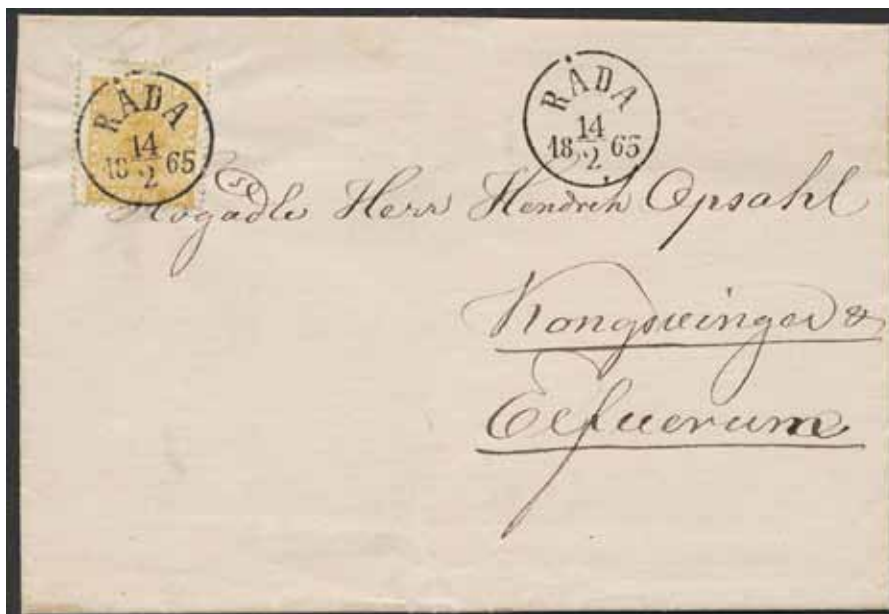 RÅDA
18 14/2 65
RÅDA
18 14/2 65
Högädle Herr Hendrich Opsahl
Kongswinger &
Elfwerum